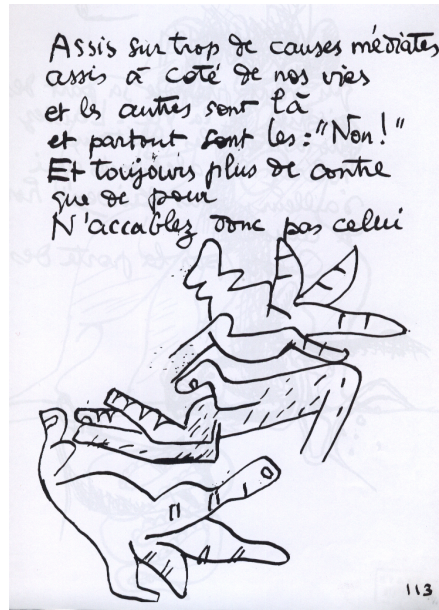 Assis sur trop de causes médiates
assis à coté de nos vies
et les autres sont là
et partout sont les : "Non !"
Et toujours plus de contre
que de pour
N'accablez donc pas celui
113